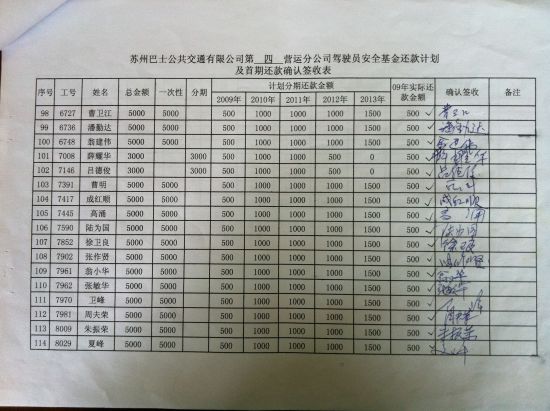 苏州巴士公共交通有限公司第 四 营运分公司驾驶员安全基金还款计划
及首期还款确认签收表
序号 工号 姓名 总金额 一次性 分期 计划分期还款金额 09年实际还款金额 确认签收 备注
2009年 2010年 2011年 2012年 2013年
98 6727 曹卫江 5000 5000 500 1000 1000 1000 1500 500
99 6736 潘勤达 5000 5000 500 1000 1000 1000 1500 500
100 6748 翁建伟 5000 5000 500 1000 1000 1000 1500 500
101 7008 薛耀华 3000 3000 500 1000 1000 500 0 500
102 7146 吕德俊 3000 3000 500 1000 1000 500 0 500
103 7391 曹明 5000 5000 500 1000 1000 1000 1500 500
104 7417 成红顺 5000 5000 500 1000 1000 1000 1500 500 成红顺
105 7445 高涌 5000 5000 500 1000 1000 1000 1500 500
106 7590 陆为国 5000 5000 500 1000 1000 1000 1500 500 陆为国
107 7852 徐卫良 5000 5000 500 1000 1000 1000 1500 500
108 7902 张作贤 5000 5000 500 1000 1000 1000 1500 500
109 7961 翁小华 5000 5000 500 1000 1000 1000 1500 500
110 7962 张敏华 5000 5000 500 1000 1000 1000 1500 500
111 7970 卫峰 5000 5000 500 1000 1000 1000 1500 500
112 7981 周夫荣 5000 5000 500 1000 1000 1000 1500 500
113 8009 朱振荣 5000 5000 500 1000 1000 1000 1500 500
114 8029 夏峰 5000 5000 500 1000 1000 1000 1500 500